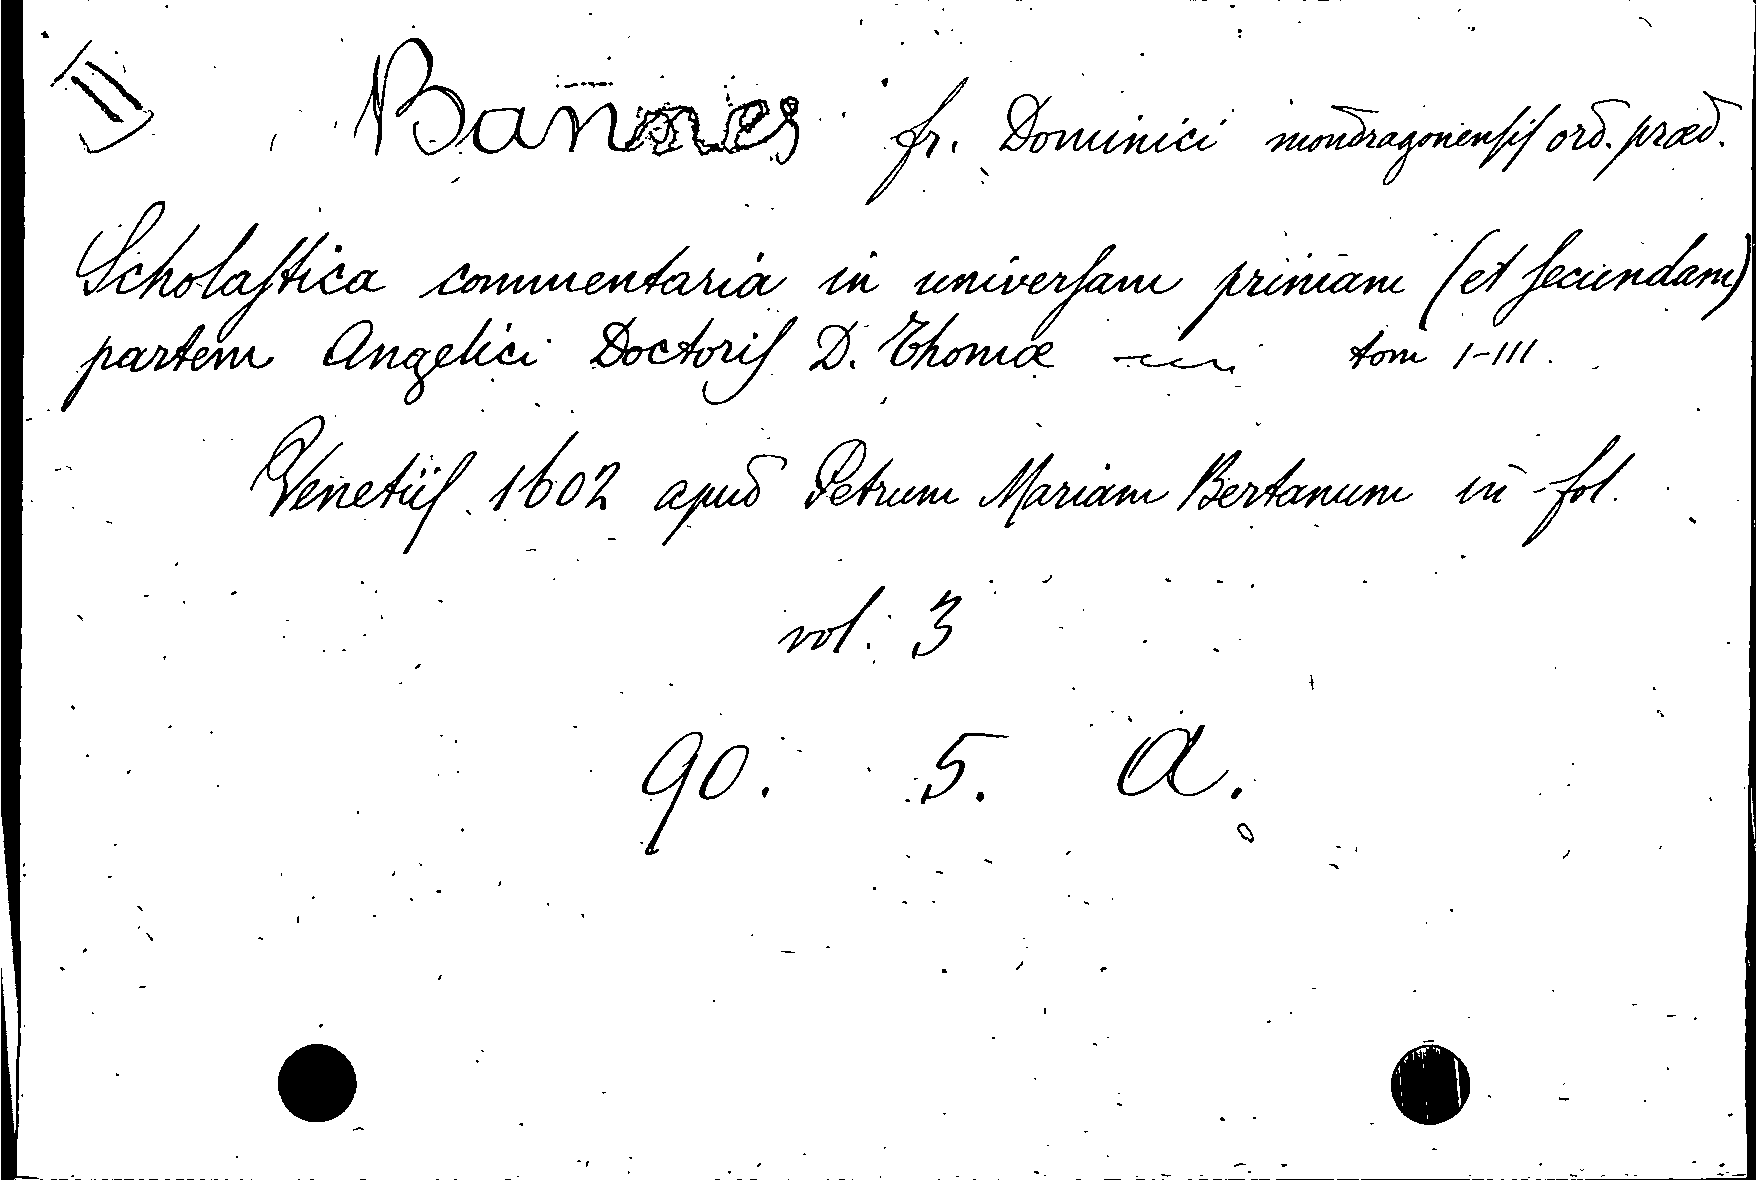 II Bannes fr. Dominici mondragonensis ord. præd.
Scholastica commentaria in universam primam (et secundam)
partem Angelici Doctoris D. Thomæ tom I-III.
Venetiis 1602 apud Petrum Mariam Bertanum in fol.
vol. 3
90. 5. a.